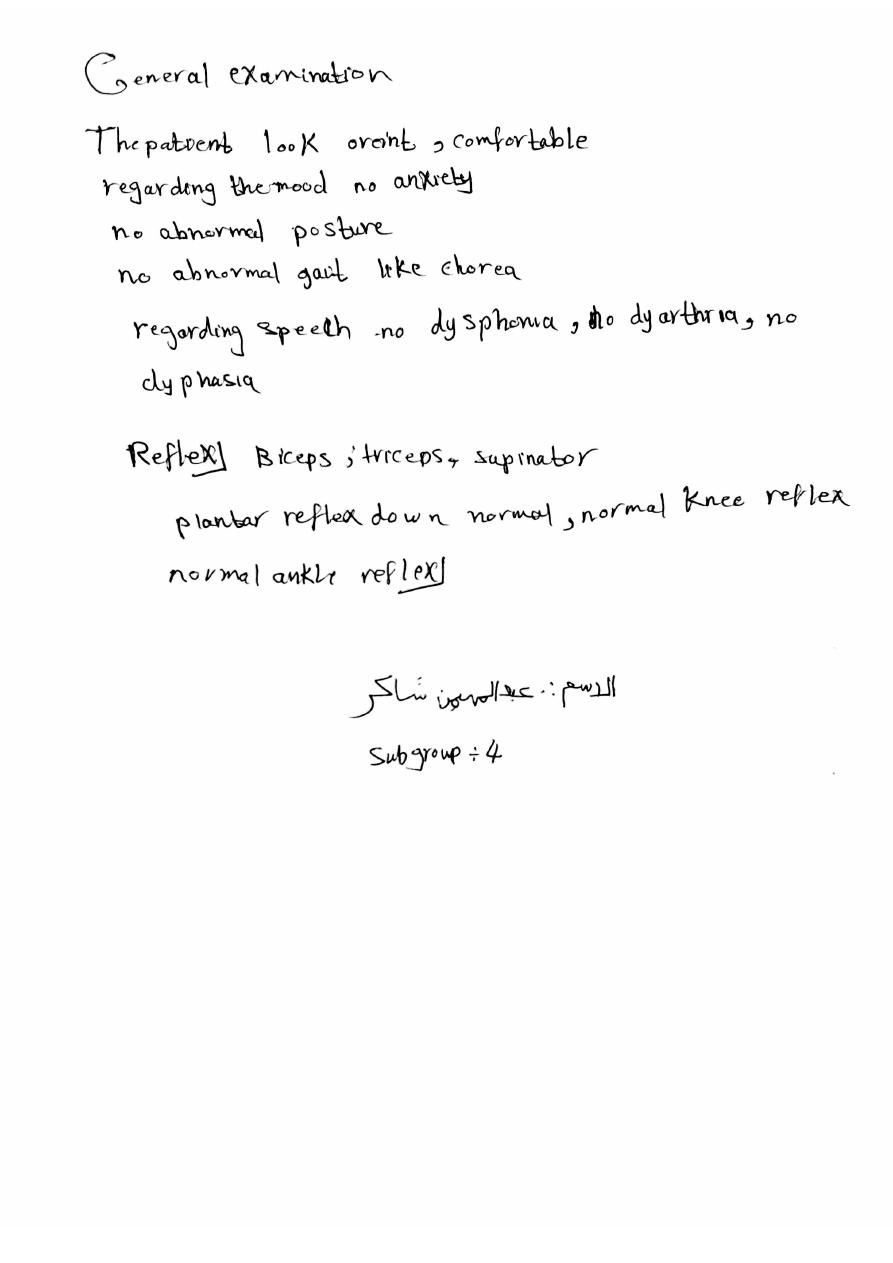 General examination
The patient look oreint , comfortable
regarding the mood no anxiety
no abnormal posture
no abnormal gait like chorea
regarding speech no dysphonia , no dyarthria , no
dyphasia
Reflex] Biceps ; triceps , supinator
plantar reflex down normal , normal Knee reflex
normal ankle reflex]
الاسم : عبدالمهيمن شاكر
Subgroup ÷ 4